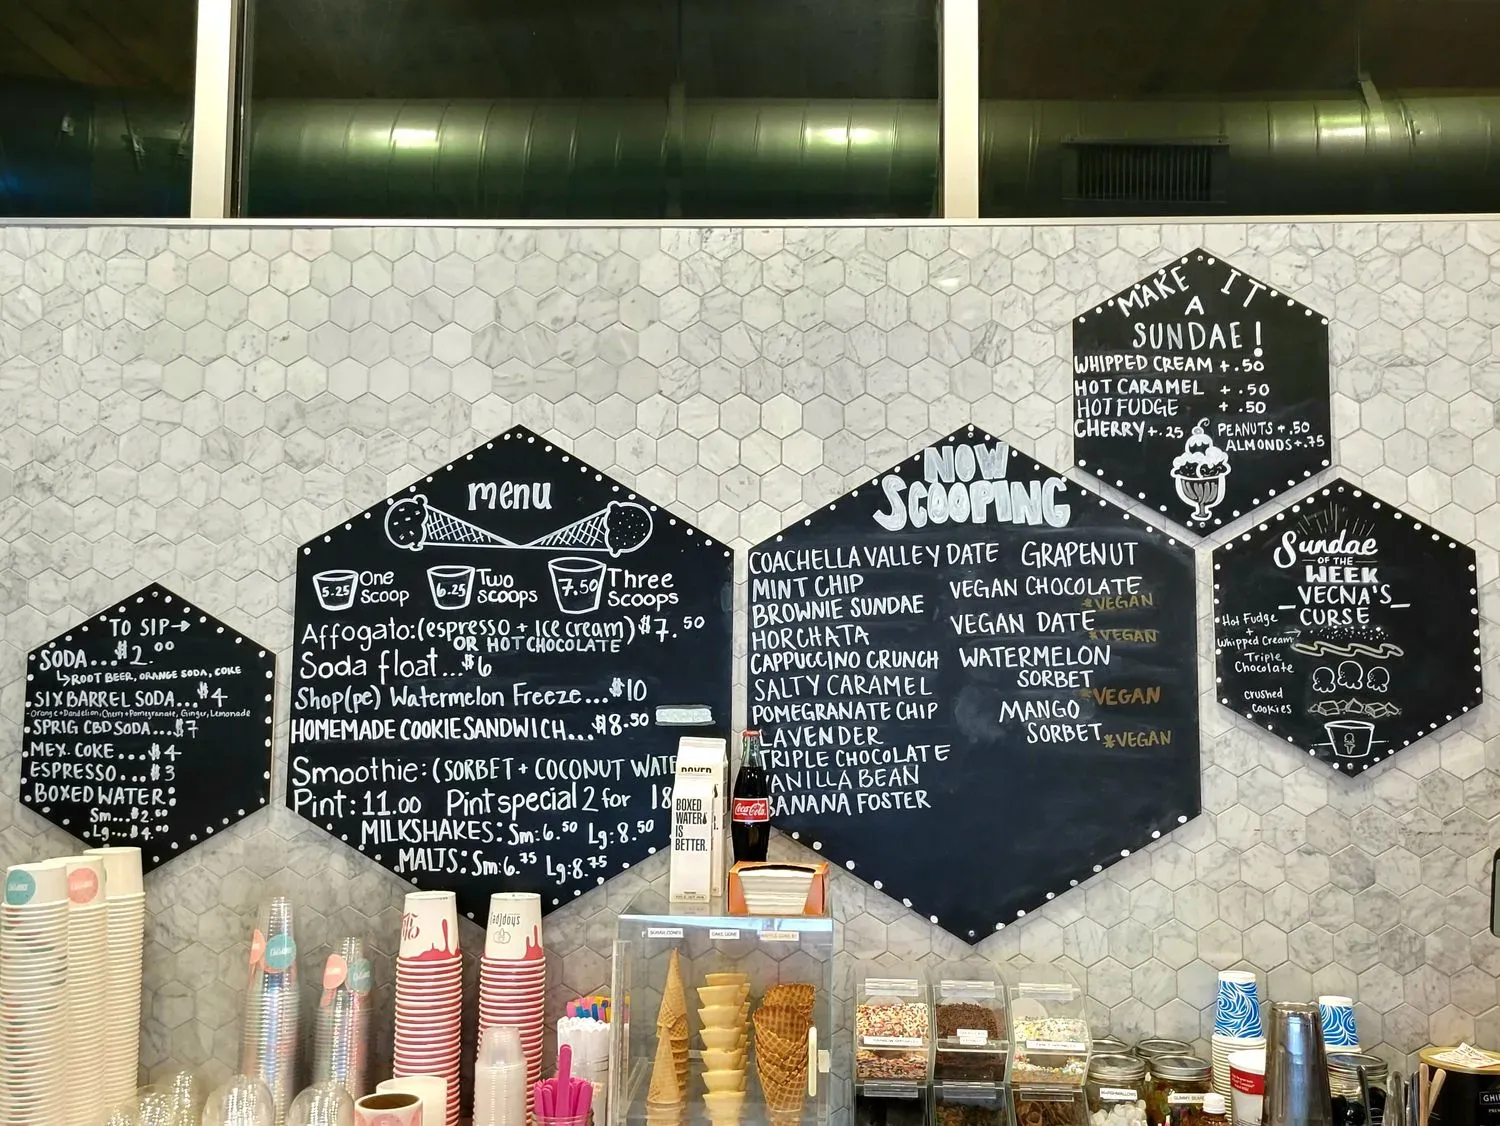 TO SIP
SODA...$2.00
ROOT BEER, ORANGE SODA, COKE
SIX BARREL SODA...$4
Orange+Dandelion, Cherry+Pomegranate, Ginger, Lemonade
SPRIG CBD SODA...$7
MEX. COKE...$4
ESPRESSO...$3
BOXED WATER:
Sm...$2.50
Lg...$4.00
menu
5.25 One Scoop
6.25 Two Scoops
7.50 Three Scoops
Affogato:(espresso + Ice cream)$7.50
OR HOT CHOCOLATE
Soda float...$6
Shop(pe) Watermelon Freeze...$10
HOMEMADE COOKIE SANDWICH...$8.50
Smoothie: (SORBET + COCONUT WATE
Pint: 11.00 Pint special 2 for 18
MILKSHAKES: Sm:6.50 Lg:8.50
MALTS: Sm:6.75 Lg:8.75
NOW
SCOOPING
COACHELLA VALLEY DATE
MINT CHIP
BROWNIE SUNDAE
HORCHATA
CAPPUCCINO CRUNCH
SALTY CARAMEL
POMEGRANATE CHIP
LAVENDER
TRIPLE CHOCOLATE
VANILLA BEAN
BANANA FOSTER
GRAPENUT
VEGAN CHOCOLATE
*VEGAN
VEGAN DATE
*VEGAN
WATERMELON
SORBET
*VEGAN
MANGO
SORBET
*VEGAN
MAKE IT
A
SUNDAE!
WHIPPED CREAM +.50
HOT CARAMEL +.50
HOT FUDGE +.50
CHERRY+.25
PEANUTS +.50
ALMONDS+.75
Sundae
OF THE
WEEK
VECNA'S
CURSE
Hot Fudge
+
Whipped Cream
Triple
Chocolate
crushed
cookies
BOXED
BOXED
WATER
IS
BETTER.
Coca-Cola
SUGAR CONES
CAKE CONE